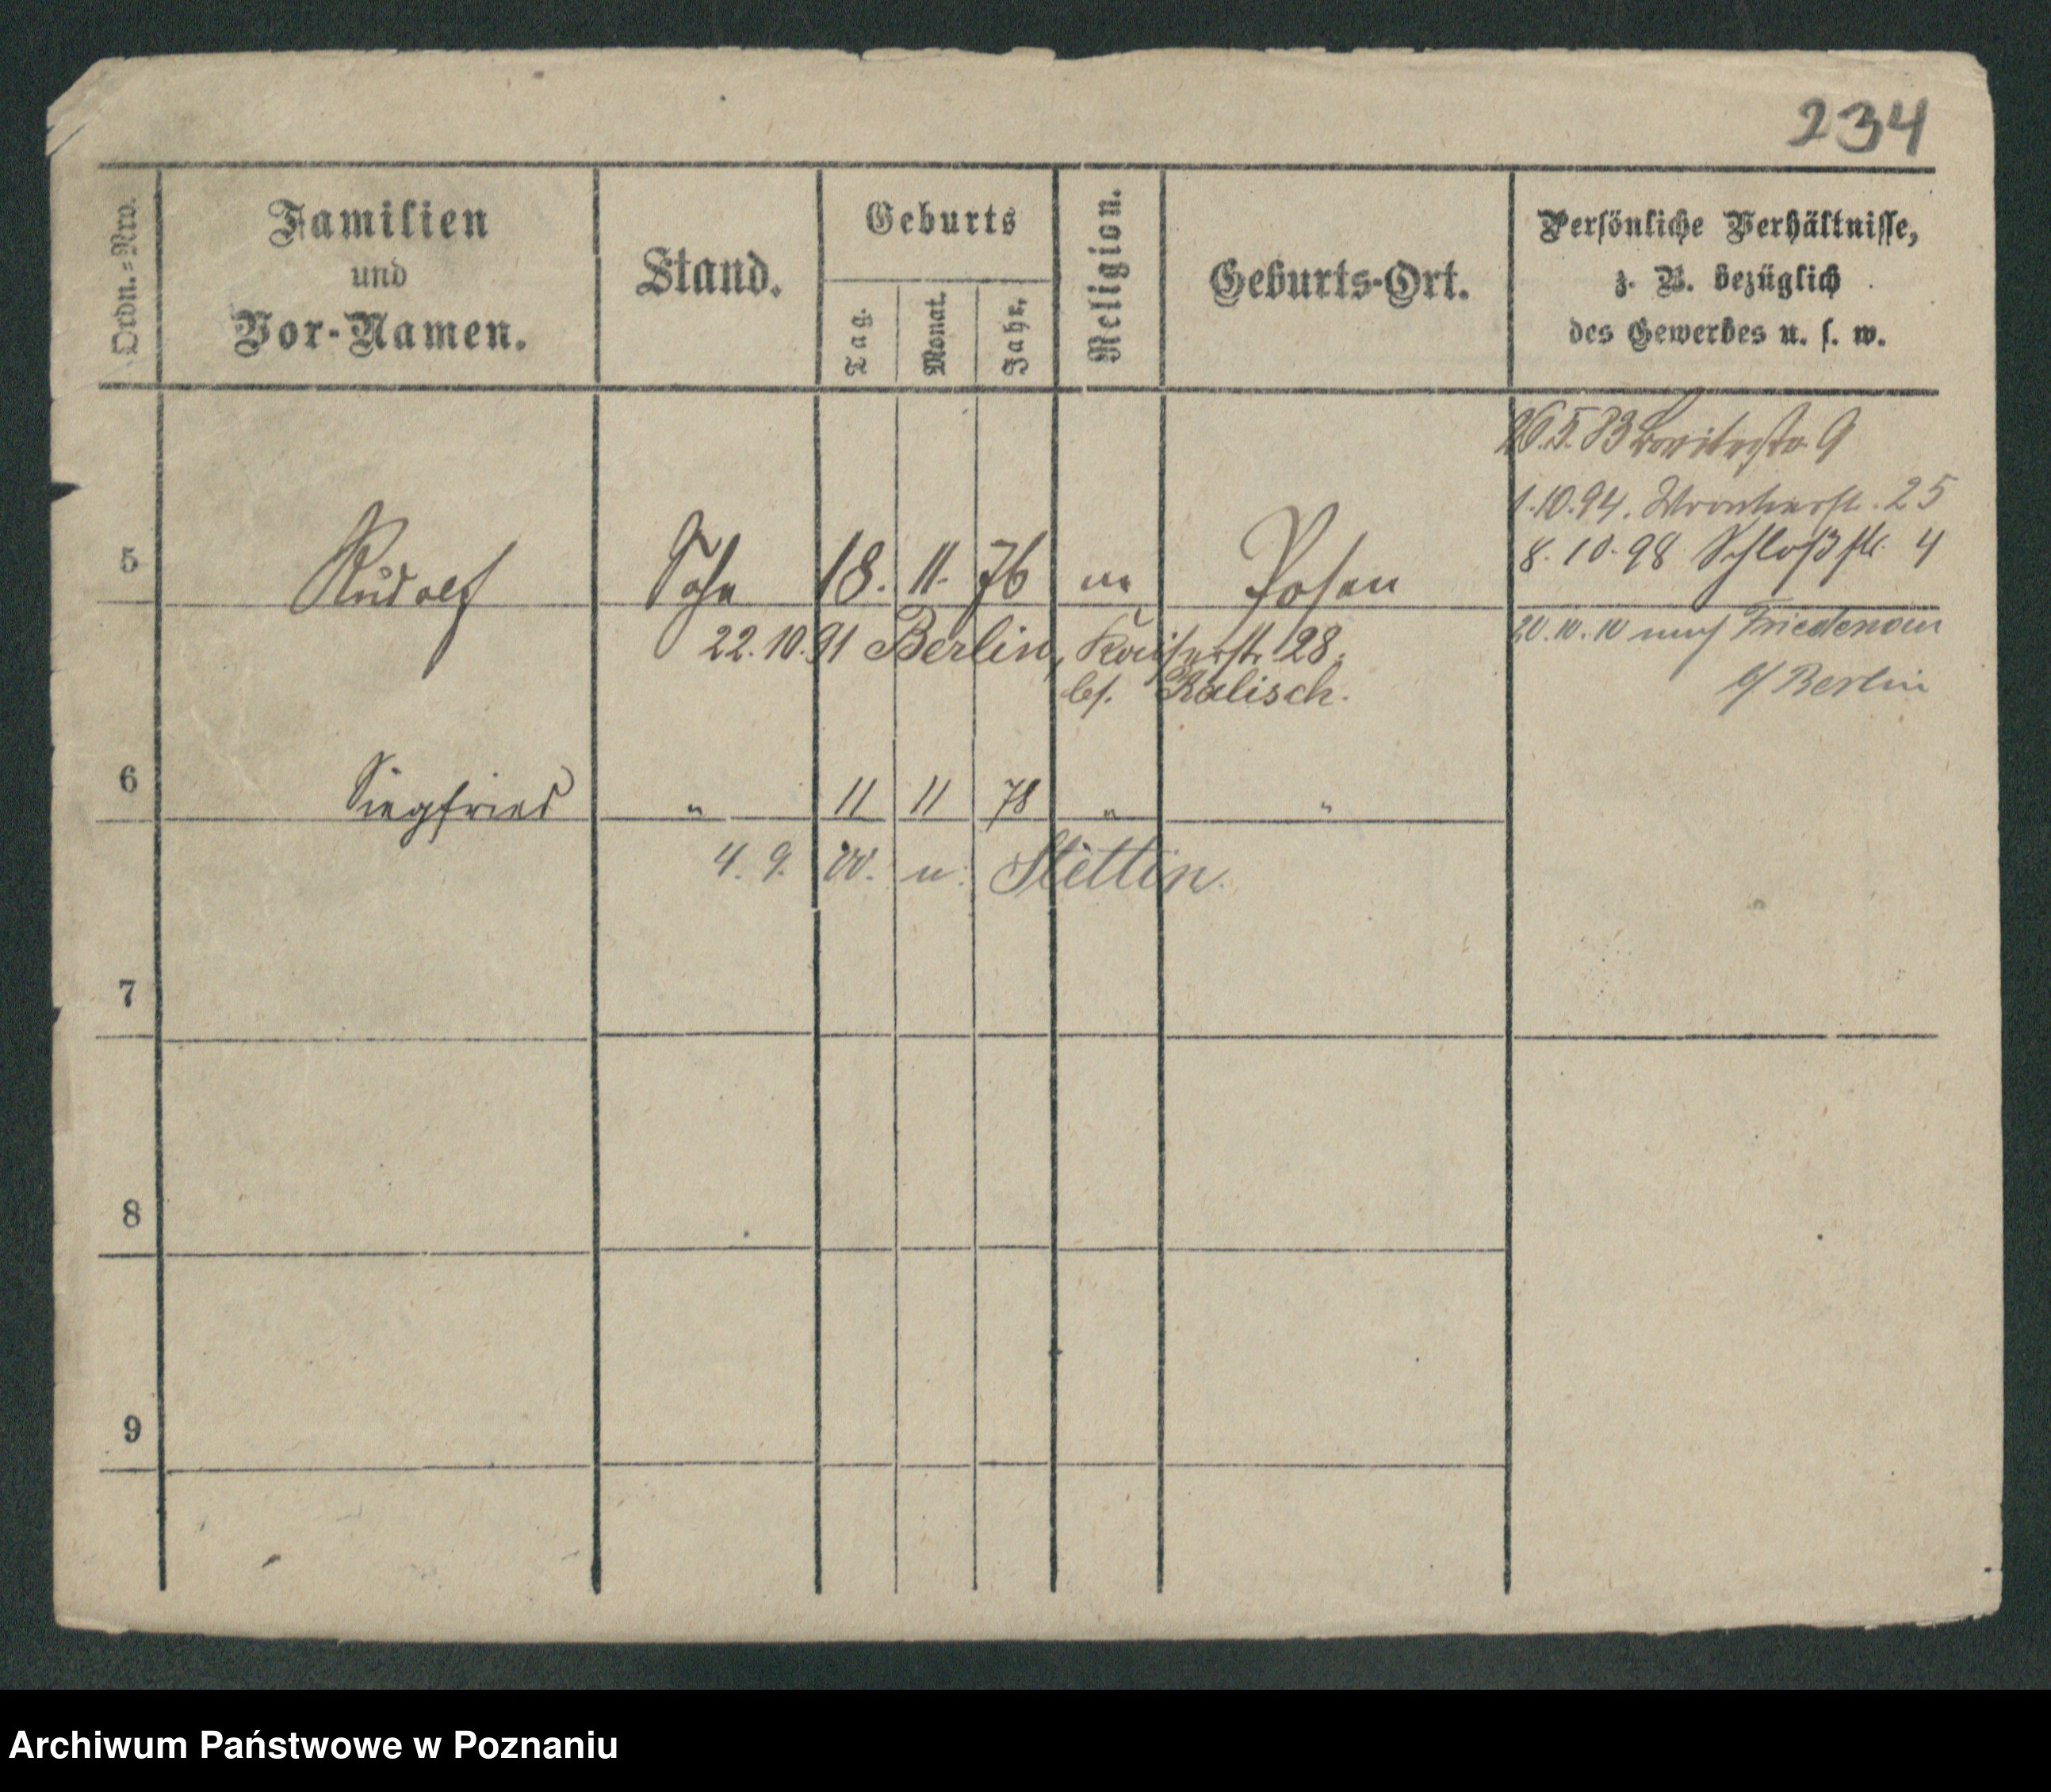 234
Ordn.=Nro.
Familien
und
Vor-Namen.
Stand.
Geburts
Tag.
Monat.
Jahr.
Religion.
Geburts-Ort.
Persönliche Verhältnisse,
z. B. bezüglich
des Gewerbes u. s. w.
26.5.83 9
1.10.94. 25
8.10.98 Schloßstr. 4
5 Rudolf Sohn 18. 11. 76 " Posen
22.10.91 Berlin, Kaiserstr. 28.
bs. Kalisch.
20.10.10 nach Friedenau
b/ Berlin
6 Siegfried " 11 11 78 " "
4. 9. n. Stettin.
7
8
9
Archiwum Państwowe w Poznaniu